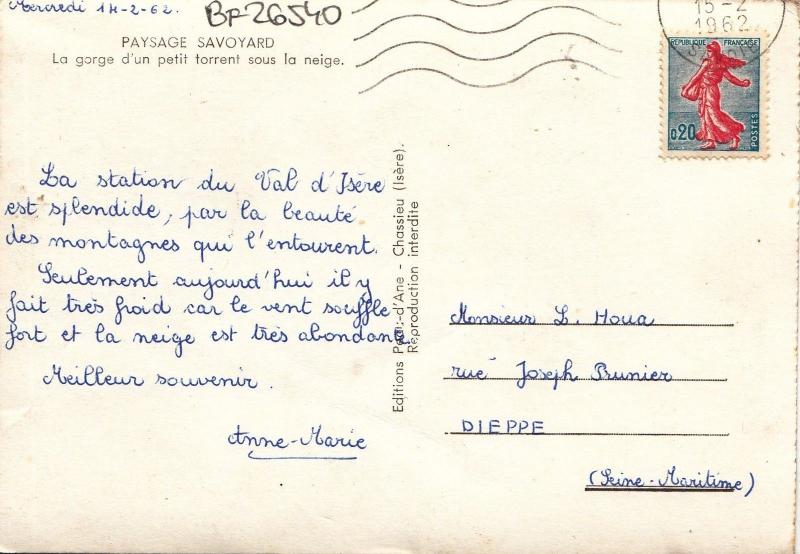 Mercredi 14-2-62.
BF26540
PAYSAGE SAVOYARD
La gorge d'un petit torrent sous la neige.
15-2
1962
REPUBLIQUE FRANÇAISE
0,20
POSTES
La station du Val d'Isère
est splendide, par la beauté
des montagnes qui l'entourent.
Seulement aujourd'hui il y
fait très froid car le vent souffle
fort et la neige est très abondante.
Meilleur souvenir.
Anne-Marie
Editions d'Ane - Chassieu (Isère).
Reproduction interdite
Monsieur L. Houa
rue Joseph Prunier
DIEPPE
(Seine-Maritime)